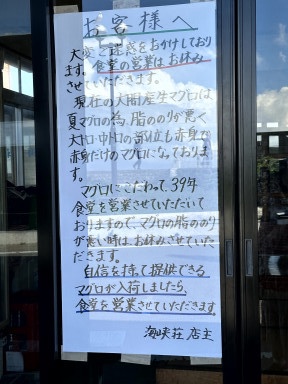 お客様へ
大変ご迷惑をおかけしており
ます。食堂の営業はお休み
させていただきます。
現在の大間産生マグロは、
夏マグロの為、脂ののりが悪く
大トロ・中トロの部位も赤身で
赤身だけのマグロになっておりま
す。
マグロにこだわって、39年
食堂を営業させていただいて
おりますので、マグロの脂ののり
が悪い時は、お休みさせていた
だきます。
自信を持って提供できる
マグロが入荷しましたら、
食堂を営業させていただきます。
海峡荘 店主